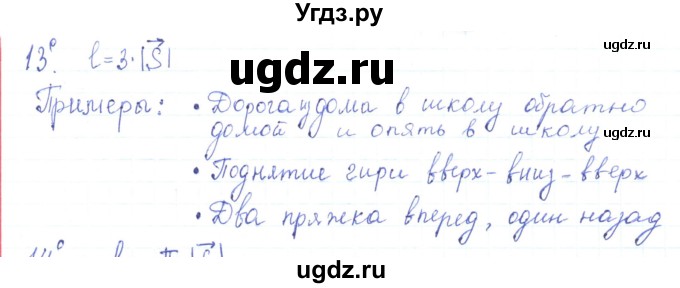 Угдз.ру
13°. l=3·|S⃗|
ugdz.ru
Примеры: • Дорога из дома в школу обратно
домой и опять в школу
ugdz.ru
• Поднятие гири вверх-вниз-вверх
• Два пряжка вперед, один назад
ugdz.ru